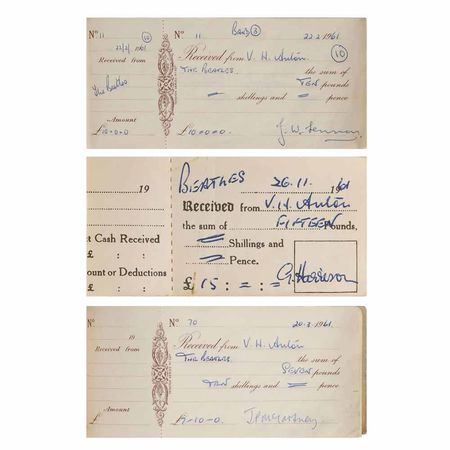 Nº 11
22/2/ 1961
Received from
The Beatles
Amount
£10-0-0
Nº 11 BAND 22.2 1961
10
Received from V. H. Antón.
THE BEATLES. the sum of
TEN pounds
shillings and pence
£10-0-0.
J. W. Lennon
19
t Cash Received
£ : :
ount or Deductions
£ : :
BEATLES 26.11. 1961
Received from V.H. Antón
the sum of FIFTEEN Pounds.
Shillings and
Pence.
£ 15 : = : =
G. Harrison
Nº
19
Received from
Amount
£
Nº 70 20.3.1961.
Received from V. H. Antón
THE BEATLES. the sum of
SEVEN pounds
TEN shillings and pence
7-10-0.
J P McCartney